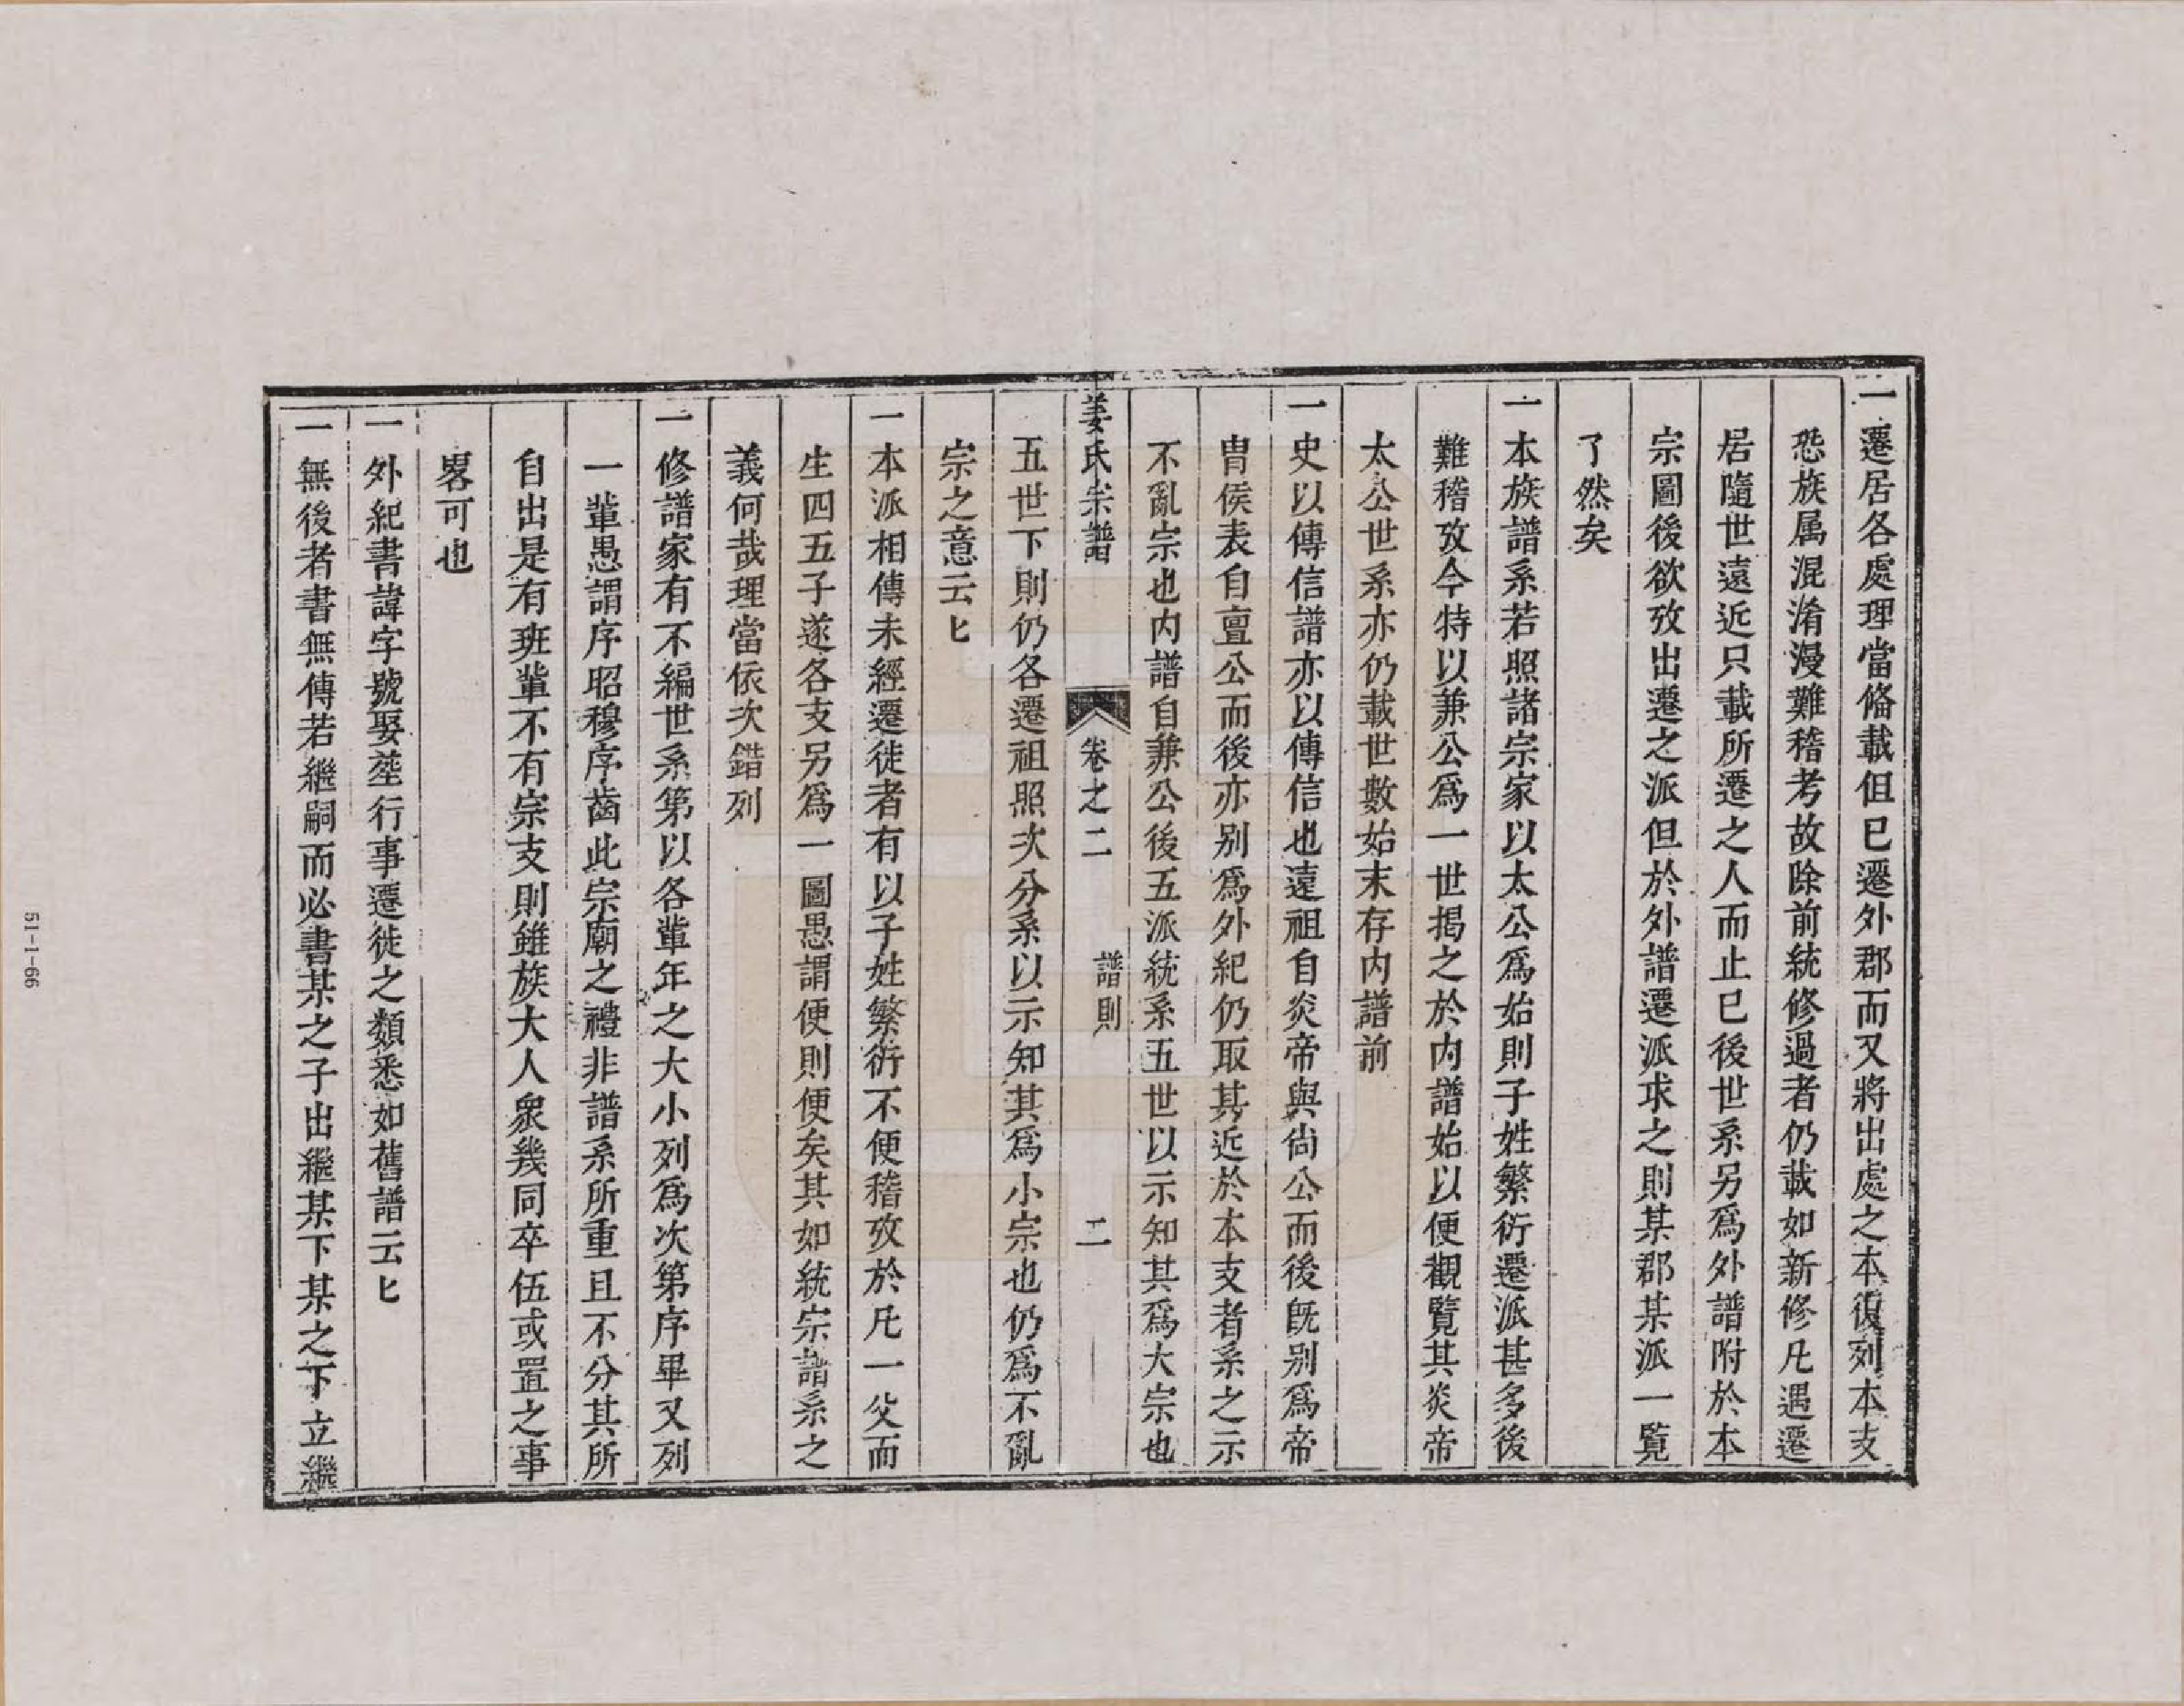 一遷居各處理當俻載但已遷外郡而又將出處之本復列本支
恐族属混淆漫難稽考故除前統修過者仍載如新修凡遇遷
居隨世遠近只載所遷之人而止已後世系另爲外譜附於本
宗圖後欲攷出遷之派但於外譜遷派求之則某郡某派一覽
了然矣
一本族譜系若照諸宗家以太公爲始則子姓繁衍遷派甚多後
難稽攷今特以兼公爲一世揭之於内譜始以便觀覽其炎帝
太公世系亦仍載世數始末存内譜前
一史以傳信譜亦以傳信也遠祖自炎帝與尙公而後旣别爲帝
冑侯表自亶公而後亦别爲外紀仍取其近於本支者系之示
不亂宗也内譜自兼公後五派統系五世以示知其爲大宗也
姜氏宗譜
卷之二
譜則
二
五世下則仍各遷祖照次分系以示知其爲小宗也仍爲不亂
宗之意云匕
一本派相傳未經遷徙者有以子姓繁衍不便稽攷於凡一父而
生四五子遂各支另爲一圖愚謂便則便矣其如統宗譜系之
義何哉理當依次錯列
一修譜家有不編世系第以各輩年之大小列爲次第序畢又列
一輩愚謂序昭穆序齒此宗廟之禮非譜系所重且不分其所
自出是有班輩不有宗支則雖族大人衆幾同卒伍或置之事
畧可也
一外紀書諱字號娶塟行事遷徙之類悉如舊譜云匕
一無後者書無傳若繼嗣而必書某之子出繼某下某之下立繼
51-1-66